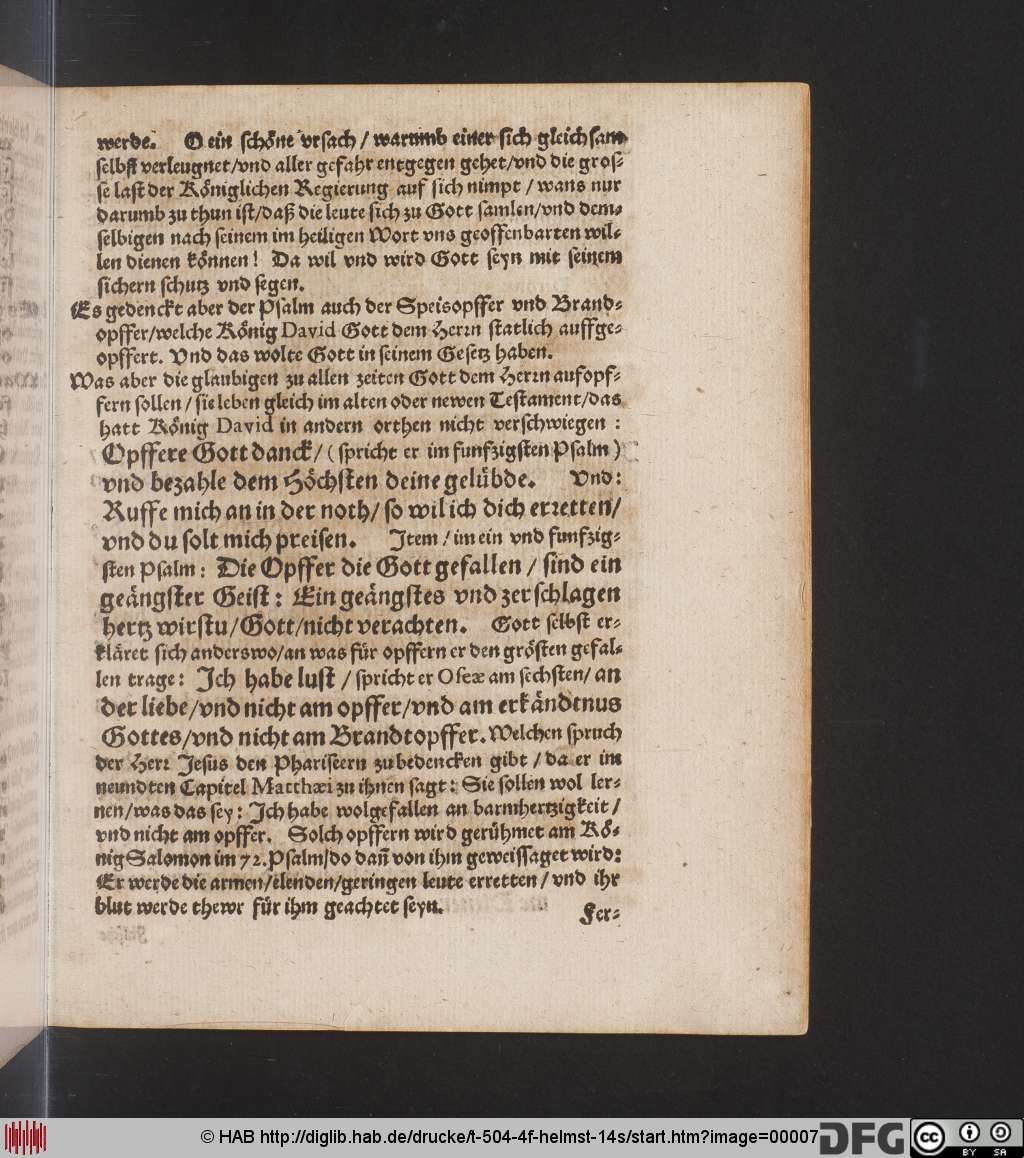 werde. O ein schöne vrsach / warumb einer sich gleichsam
selbst verleugnet/vnd aller gefahr entgegen gehet/vnd die gros-
se last der Königlichen Regierung auf sich nimpt / wans nur
darumb zu thun ist/daß die leute sich zu Gott samlen/vnd dem-
selbigen nach seinem im heiligen Wort vns geoffenbarten wil-
len dienen können! Da wil vnd wird Gott seyn mit seinem
sichern schutz vnd segen.
Es gedenckt aber der Psalm auch der Speisopffer vnd Brand-
opffer/welche König David Gott dem Herrn statlich auffge-
opffert. Vnd das wolte Gott in seinem Gesetz haben.
Was aber die glaubigen zu allen zeiten Gott dem Herrn aufopf-
fern sollen / sie leben gleich im alten oder newen Testament/das
hatt König David in andern orthen nicht verschwiegen :
Opffere Gott danck/ (spricht er im funfzigsten Psalm)
vnd bezahle dem Höchsten deine gelübde. Vnd:
Ruffe mich an in der noth/ so wil ich dich erretten/
vnd du solt mich preisen. Item / im ein vnd funfzig-
sten Psalm: Die Opffer die Gott gefallen / sind ein
geängster Geist: Ein geängstes vnd zerschlagen
hertz wirstu/Gott/nicht verachten. Gott selbst er-
kläret sich anderswo/an was für opffern er den grösten gefal-
len trage: Ich habe lust / spricht er Oseæ am sechsten/ an
der liebe/vnd nicht am opffer/vnd am erkändtnus
Gottes/vnd nicht am Brandtopffer. Welchen spruch
der Herr Jesus den Phariseern zubedencken gibt / da er im
neundten Capitel Matthæi zu ihnen sagt: Sie sollen wol ler-
nen/was das sey: Ich habe wolgefallen an barmhertzigkeit /
vnd nicht am opffer. Solch opffern wird gerühmet am Kö-
nig Salomon im 72. Psalm/do dañ von ihm geweissaget wird:
Er werde die armen/elenden/geringen leute erretten / vnd ihr
blut werde thewr für ihm geachtet seyn.
Fer-
© HAB http://diglib.hab.de/drucke/t-504-4f-helmst-14s/start.htm?image=00007
DFG
cc BY SA